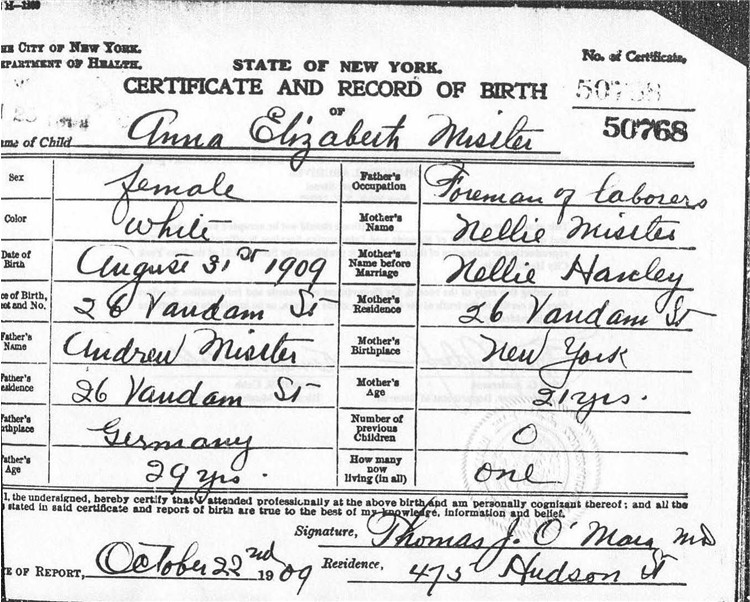 HE CITY OF NEW YORK.
EPARTMENT OF HEALTH.
STATE OF NEW YORK.
No. of Certificate.
CERTIFICATE AND RECORD OF BIRTH
50768
OF
50768
ame of Child Anna Elizabeth Misiter
Sex female
Father's Occupation Foreman of laborers
Color White
Mother's Name Nellie Misiter
Date of Birth August 31st 1909
Mother's Name before Marriage Nellie Hanley
ce of Birth, et and No. 26 Vandam St
Mother's Residence 26 Vandam St
Father's Name Andrew Misiter
Mother's Birthplace New York
Father's esidence 26 Vandam St
Mother's Age 21 yrs.
Father's rthplace Germany
Number of previous Children 0
Father's Age 29 yrs.
How many now living (in all) one
I, the undersigned, hereby certify that I attended professionally at the above birth and am personally cognizant thereof; and all the
stated in said certificate and report of birth are true to the best of my knowledge, information and belief.
Signature, Thomas J. O'Mara MD
TE OF REPORT, October 22nd 1909
Residence, 475 Hudson St